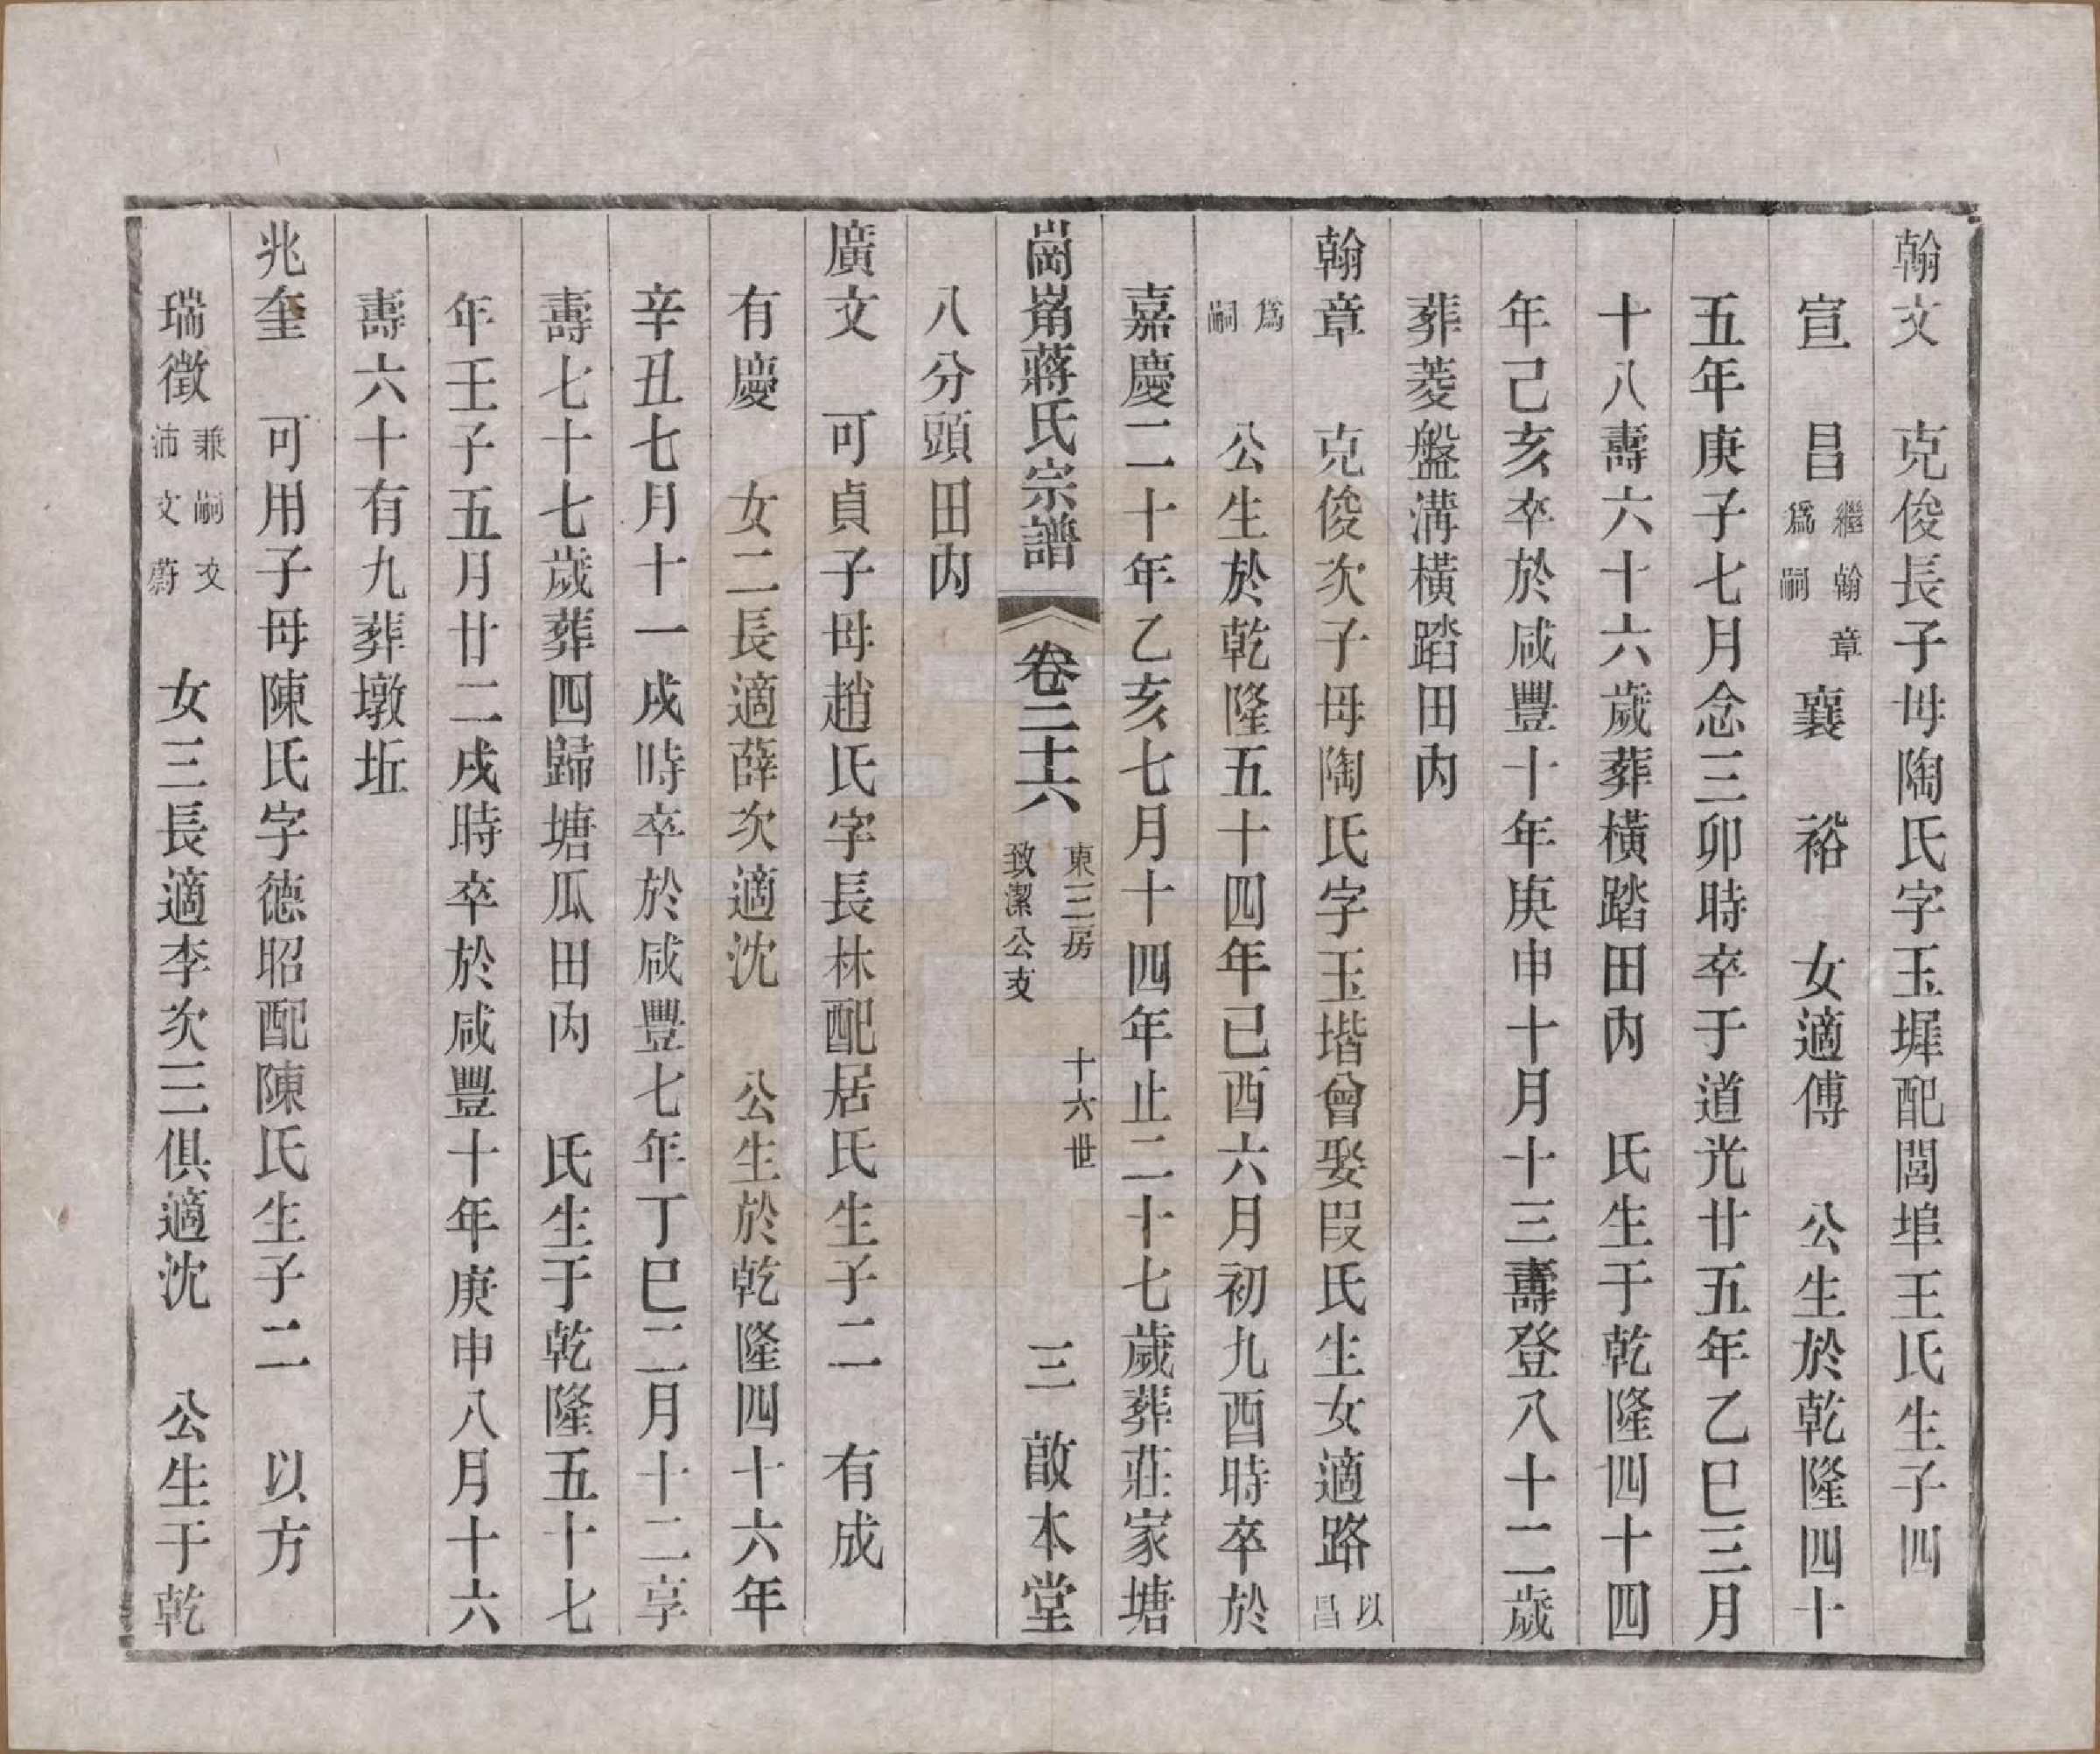 翰文　克俊長子母陶氏字玉墀配閭埠王氏生子四
宣　昌繼翰章爲嗣　襄　裕　女適傅　公生於乾隆四十
五年庚子七月念三卯時卒于道光廿五年乙巳三月
十八壽六十六歲葬橫踏田內　氏生于乾隆四十四
年己亥卒於咸豐十年庚申十月十三壽登八十二歲
葬菱盤溝橫踏田內
翰章　克俊次子母陶氏字玉堦曾娶段氏生女適路以昌
爲嗣　公生於乾隆五十四年己酉六月初九酉時卒於
嘉慶二十年乙亥七月十四年止二十七歲葬莊家塘
崗岽蔣氏宗譜　卷二十六　東三房致潔公支　十六世　三　啟本堂
八分頭田內
廣文　可貞子母趙氏字長林配居氏生子二　有成
有慶　女二長適薛次適沈　公生於乾隆四十六年
辛丑七月十一戌時卒於咸豐七年丁巳二月十二享
壽七十七歲葬四歸塘瓜田內　氏生于乾隆五十七
年壬子五月廿二戌時卒於咸豐十年庚申八月十六
壽六十有九葬墩坵
兆奎　可用子母陳氏字德昭配陳氏生子二　以方
瑞徵兼嗣文沛文蔚　女三長適李次三俱適沈　公生于乾